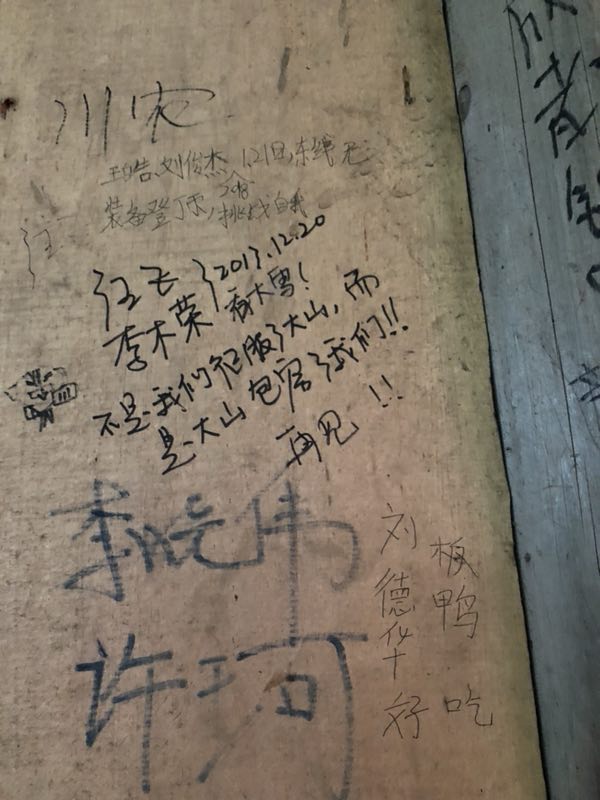 川农
王皓、刘俊杰 1.21日,东线无
装备登顶 挑战自我
汪飞 2017.12.20
李木荣 看大雪!
不是我们征服了大山,而
是大山包容了我们!!
再见!!
李晓伟
许珂
刘德华好
板鸭 吃